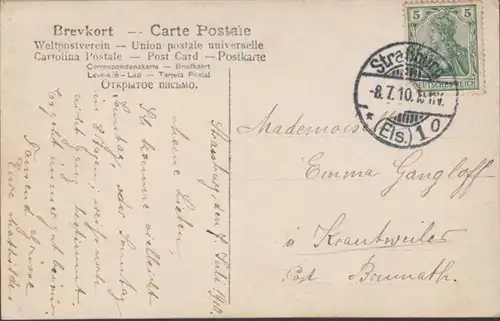 Brevkort — Carte Postale
Weltpostverein - Union postale universelle
Cartolina Postale - Post Card - Postkarte
Correspondenzkarte - Brefkort
Levelezö-Lap - Tarjeta Postal
Открытое письмо.
5 5
DEUTSCHES REICH
Straßburg
8.7.10.
* (Els.) 1 o
Strassburg, den 7 Juli 1910.
Meine Lieben,
Ich komme vielleicht
Samstag, oder Sonntag
8 Tagen; weiss noch
nicht ganz bestimmt.
Es geht immer gut bei mir.
Tausend Grüsse
Eure Mathilde.
Mademoiselle
Emma Gangloff
à Krautweiler
Post Brumath.